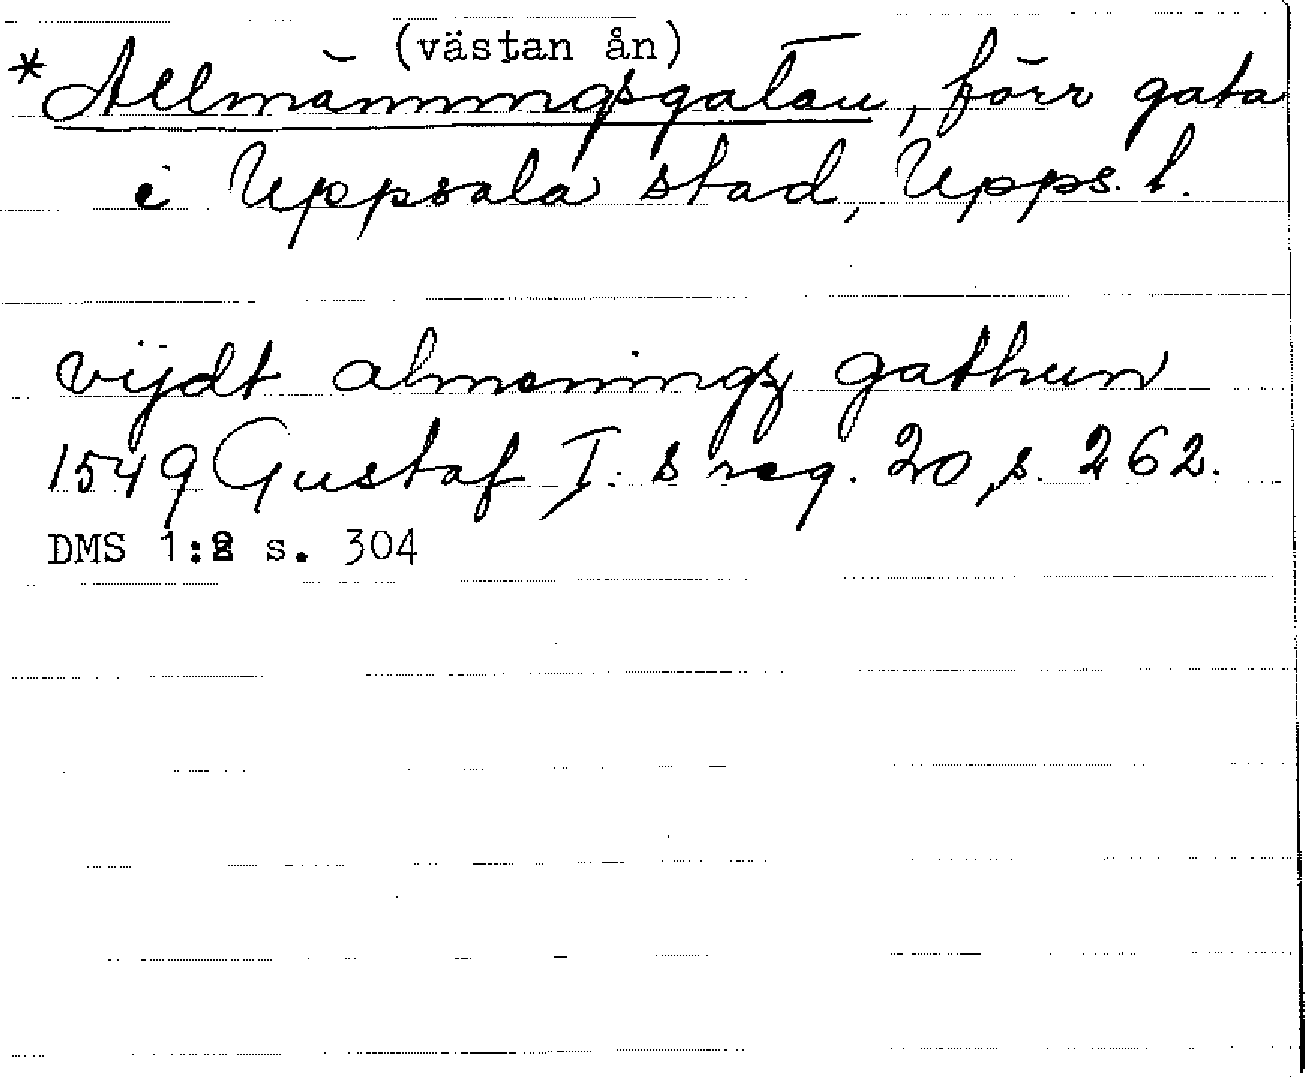 (västan ån)
*Allmänningsgatan, förr gata
i Uppsala stad, Upps. l.
vijdt almeningz gathun
1549 Gustaf I:s reg. 20, s. 262.
DMS 1:2 s. 304